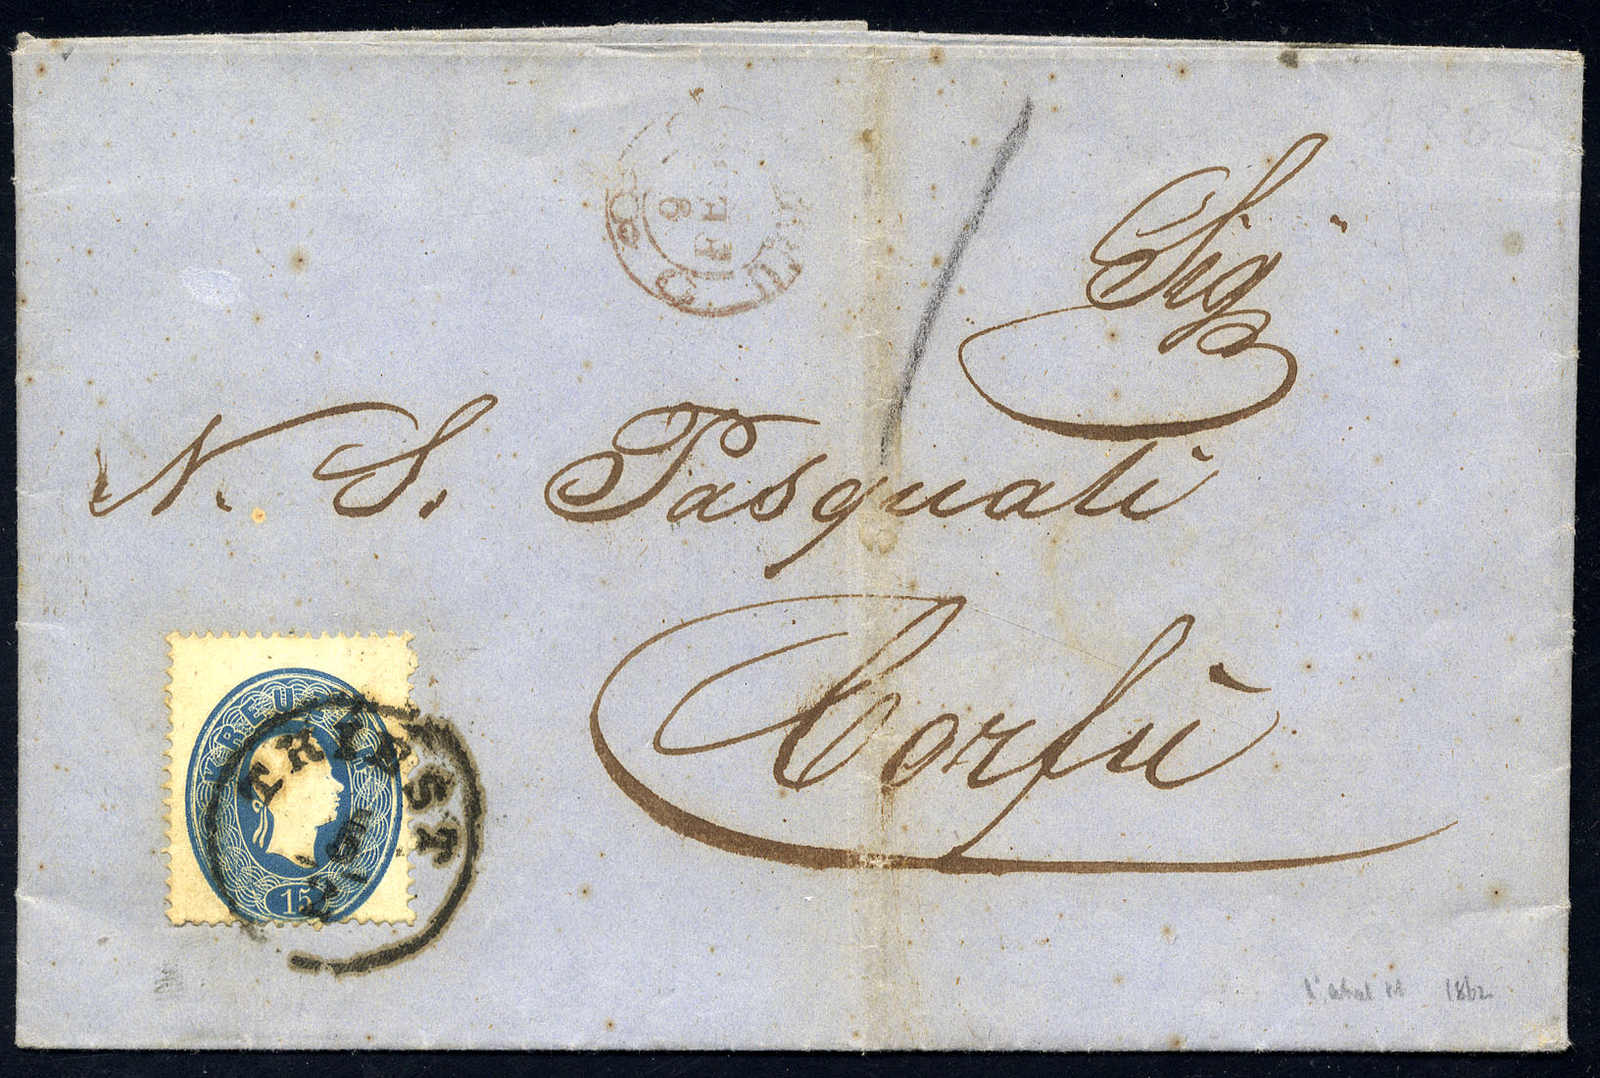 Sig
N. S. Pasquali
Corfù
KREUZER
15
TRIEST
1862